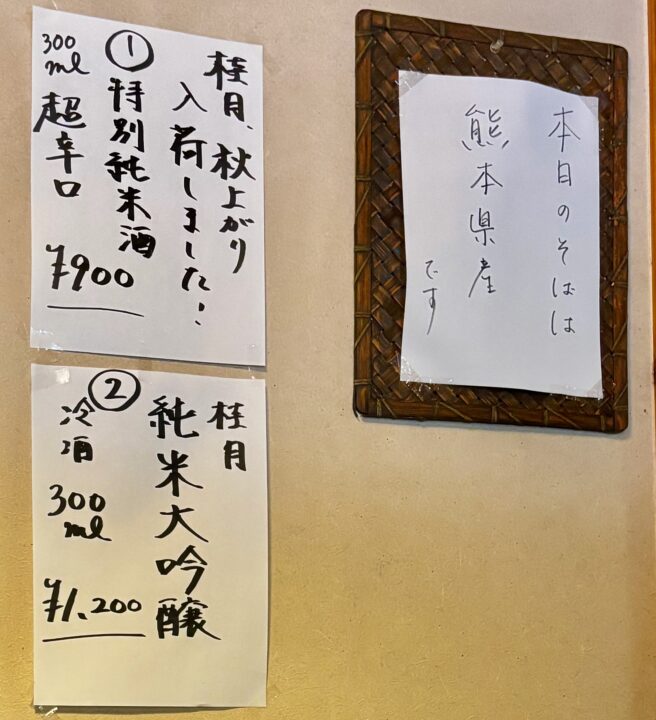 桂月、秋上がり
入荷しました!
①特別純米酒
300ml 超辛口
¥900
②
桂月
純米大吟醸
冷酒
300ml
¥1,200
本日のそばは
熊本県産
です